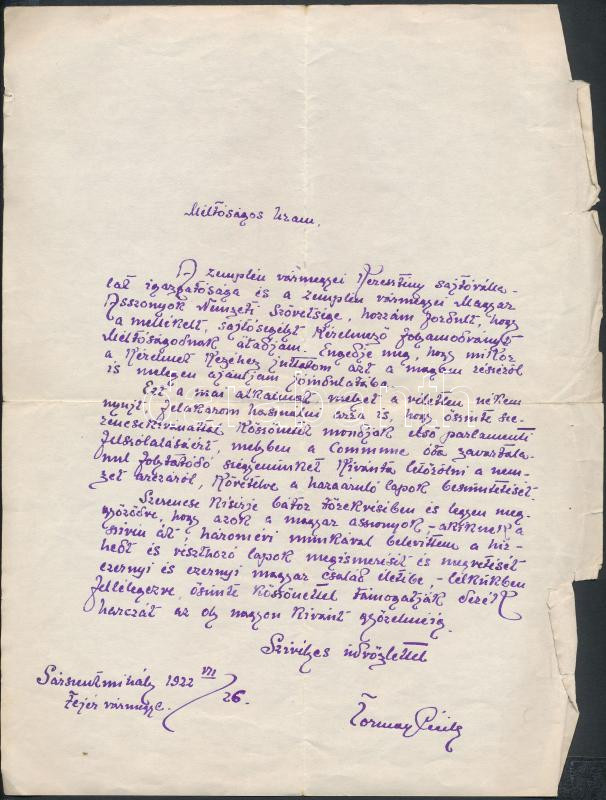 Méltóságos Uram,
A zemplén vármegyei Keresztény sajtóválla-
lat igazgatósága és a zemplén vármegyei Magyar
Asszonyok Nemzeti Szövetsége, hozzám fordult, hogy
a mellékelt, sajtósegélyt kérelmező folyamodványt
Méltóságodnak átadjam. Engedje meg, hogy mikor
a kérelmet kezéhez juttatom azt a magam részéről
is melegen ajánljam jóindulatába.
Ezt a mai alkalmat melyet a véletlen nékem
nyujt felakarom használni arra is, hogy őszinte sze-
rencsekivánattal köszönetet mondjak első parlamenti
felszólalásáért, melyben a Commune óta zavartala-
nul folytatódó szégyenünket kivánta letörölni a nem-
zet arczáról, követelve a hazaáruló lapok beszüntetését.
Szerencse kisérje bátor törekvésében és legyen meg-
győződve, hogy azok a magyar asszonyok, - akiknek a
szivén át háromévi munkával belevittem a hir-
hedt és vészthozó lapok megismerését és megvetését
ezernyi és ezernyi magyar család életébe, - lelkükben
fellélegezve, őszinte köszönettel támogatják
harczát az oly nagyon kivánt győzelméig.
Szivélyes üdvözlettel
Sárszentmihály 1922 VII/26.
Fejér vármegye.
Tormay Cécile
darabanth